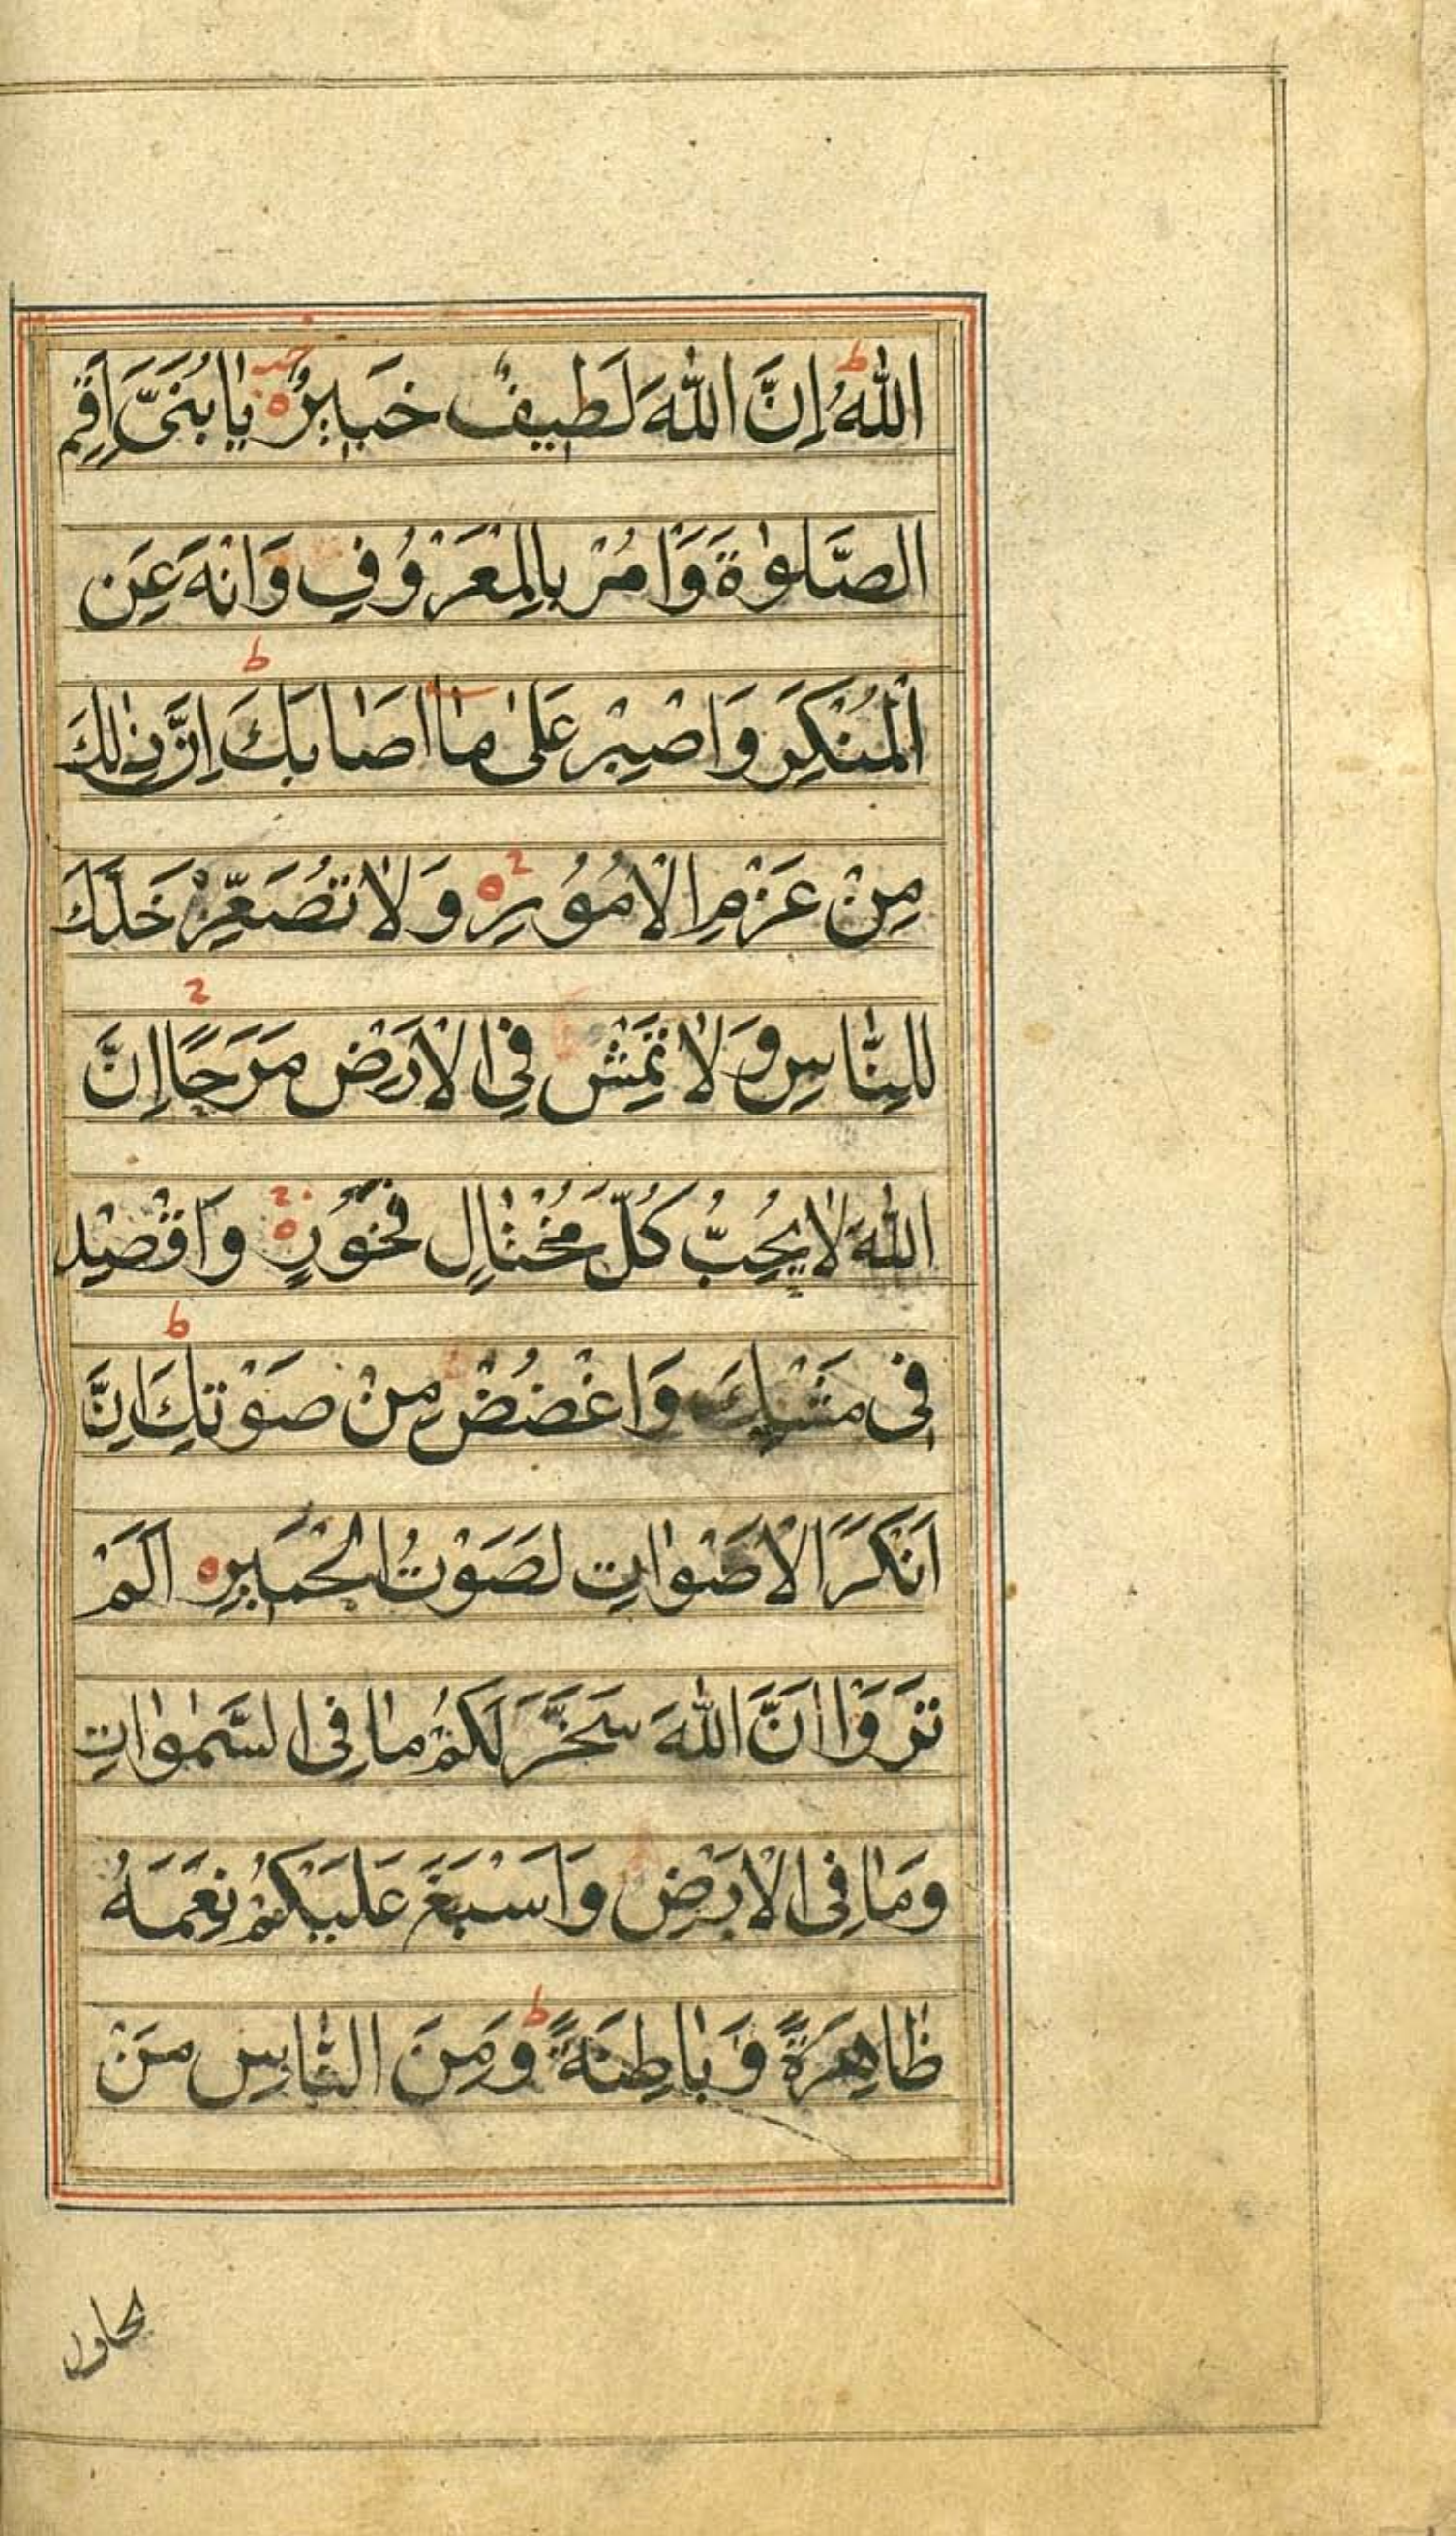 اللّٰهُ ط اِنَّ اللّٰهَ لَطِيفٌ خَبِيرٌ ه يٰا بُنَىَّ اَقِمِ
الصَّلٰوةَ وَاْمُرْ بِالْمَعْرُوفِ وَانْهَ عَنِ
الْمُنْكَرِ وَاصْبِرْ عَلىٰ مٰا اَصٰابَكَ ط اِنَّ ذٰلِكَ
مِنْ عَزْمِ الْاُمُورِ ه وَلٰا تُصَعِّرْ خَدَّكَ
لِلنّٰاسِ وَلٰا تَمْشِ فِى الْاَرْضِ مَرَحًا اِنَّ
اللّٰهَ لٰا يُحِبُّ كُلَّ مُخْتٰالٍ فَخُورٍ ه وَاقْصِدْ
فِى مَشْيِكَ وَاغْضُضْ مِنْ صَوْتِكَ ط اِنَّ
اَنْكَرَ الْاَصْوٰاتِ لَصَوْتُ الْحَمِيرِ ه اَلَمْ
تَرَوْا اَنَّ اللّٰهَ سَخَّرَ لَكُمْ مٰا فِى السَّمٰوٰاتِ
وَمٰا فِى الْاَرْضِ وَاَسْبَغَ عَلَيْكُمْ نِعَمَهُ
ظٰاهِرَةً وَبٰاطِنَةً ط وَمِنَ النّٰاسِ مَنْ